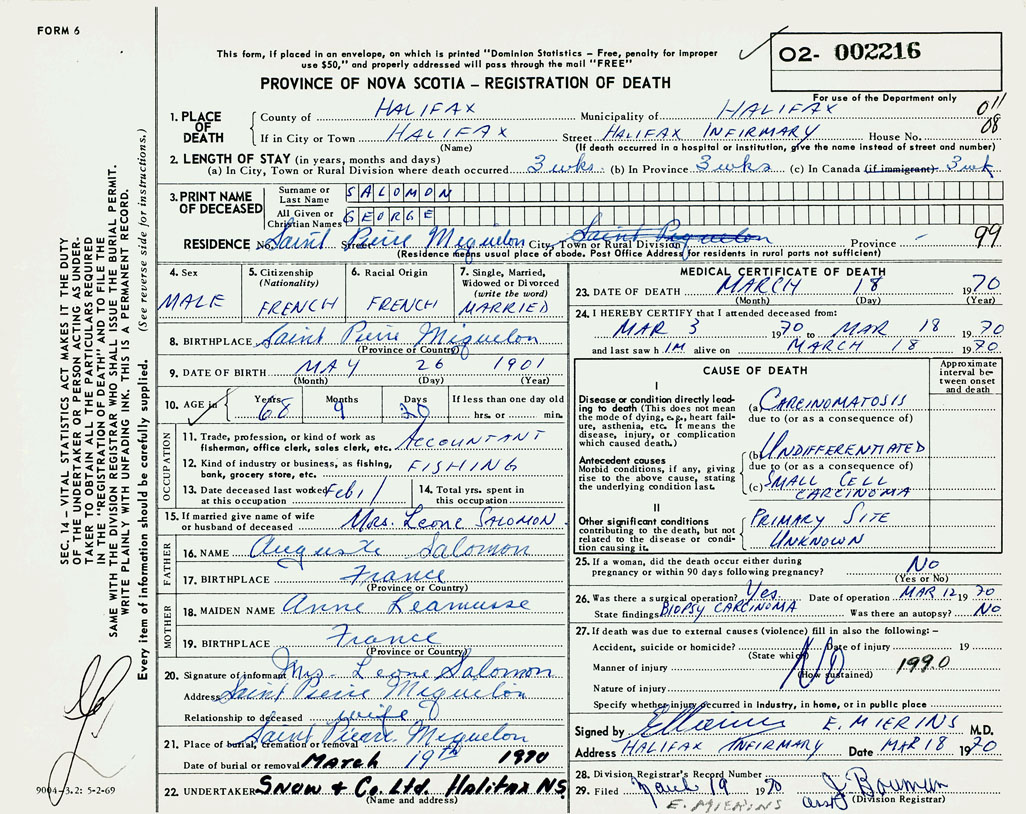 FORM 6
This form, if placed in an envelope, on which is printed "Dominion Statistics – Free, penalty for improper
use $50," and properly addressed will pass through the mail "FREE"
O2- 002216
For use of the Department only
PROVINCE OF NOVA SCOTIA – REGISTRATION OF DEATH
011
08
1. PLACE OF DEATH
County of HALIFAX Municipality of HALIFAX
If in City or Town HALIFAX Street HALIFAX INFIRMARY House No.
(Name) (If death occurred in a hospital or institution, give the name instead of street and number)
2. LENGTH OF STAY (in years, months and days)
(a) In City, Town or Rural Division where death occurred 3 wks. (b) In Province 3 wks (c) In Canada (if immigrant) 3 wk
3. PRINT NAME OF DECEASED
Surname or Last Name SALOMON
All Given or Christian Names GEORGE
RESIDENCE No. Saint Street Pierre Miquelon City, Town or Rural Division Saint Province – 99
(Residence means usual place of abode. Post Office Address for residents in rural parts not sufficient)
4. Sex MALE
5. Citizenship (Nationality) FRENCH
6. Racial Origin FRENCH
7. Single, Married, Widowed or Divorced (write the word) MARRIED
8. BIRTHPLACE Saint Pierre Miquelon
(Province or Country)
9. DATE OF BIRTH MAY 26 1901
(Month) (Day) (Year)
10. AGE in Years 68 Months 9 Days 20 If less than one day old
hrs. or min.
OCCUPATION
11. Trade, profession, or kind of work as
fisherman, office clerk, sales clerk, etc. ACCOUNTANT
12. Kind of industry or business, as fishing,
bank, grocery store, etc. FISHING
13. Date deceased last worked at this occupation Feb 1/
14. Total yrs. spent in this occupation
15. If married give name of wife
or husband of deceased Mrs. Leone Salomon
FATHER
16. NAME Auguste Salomon
17. BIRTHPLACE France
(Province or Country)
MOTHER
18. MAIDEN NAME Anne
19. BIRTHPLACE France
(Province or Country)
20. Signature of informant Mrs. Leone Salomon
Address Saint Pierre Miquelon
Relationship to deceased wife
21. Place of burial, cremation or removal Saint Pierre Miquelon
Date of burial or removal March 19th 1970
22. UNDERTAKER Snow & Co. Ltd. Halifax NS.
(Name and address)
MEDICAL CERTIFICATE OF DEATH
23. DATE OF DEATH MARCH 18 1970
(Month) (Day) (Year)
24. I HEREBY CERTIFY that I attended deceased from:
MAR 3 1970 to MAR 18 1970
and last saw him alive on MARCH 18 1970
CAUSE OF DEATH
Approximate interval between onset and death
I
Disease or condition directly leading to death (This does not mean
the mode of dying, e.g., heart failure, asthenia, etc. It means the
disease, injury, or complication
which caused death.)
(a) CARCINOMATOSIS
due to (or as a consequence of)
Antecedent causes
Morbid conditions, if any, giving
rise to the above cause, stating
the underlying condition last.
(b) UNDIFFERENTIATED
due to (or as a consequence of)
(c) SMALL CELL
CARCINOMA
II
Other significant conditions
contributing to the death, but not
related to the disease or condition causing it.
PRIMARY SITE
UNKNOWN
25. If a woman, did the death occur either during
pregnancy or within 90 days following pregnancy? No
(Yes or No)
26. Was there a surgical operation? Yes. Date of operation MAR 12 1970
State findings BIOPSY CARCINOMA Was there an autopsy? No
27. If death was due to external causes (violence) fill in also the following:–
Accident, suicide or homicide? Date of injury 19
(State which)
Manner of injury 1990
(How sustained)
Nature of injury
Specify whether injury occurred in industry, in home, or in public place
Signed by E. MIERINS M.D.
Address HALIFAX INFIRMARY Date MAR 18 1970
28. Division Registrar's Record Number
29. Filed March 19 1970 J Bauman
E. MIERINS asst (Division Registrar)
SEC. 14 – VITAL STATISTICS ACT MAKES IT THE DUTY
OF THE UNDERTAKER OR PERSON ACTING AS UNDER-
TAKER TO OBTAIN ALL THE PARTICULARS REQUIRED
IN THE "REGISTRATION OF DEATH" AND TO FILE THE
SAME WITH THE DIVISION REGISTRAR WHO SHALL ISSUE THE BURIAL PERMIT.
WRITE PLAINLY WITH UNFADING INK. THIS IS A PERMANENT RECORD.
Every item of information should be carefully supplied. (See reverse side for instructions.)
9004-3.2: 5-2-69